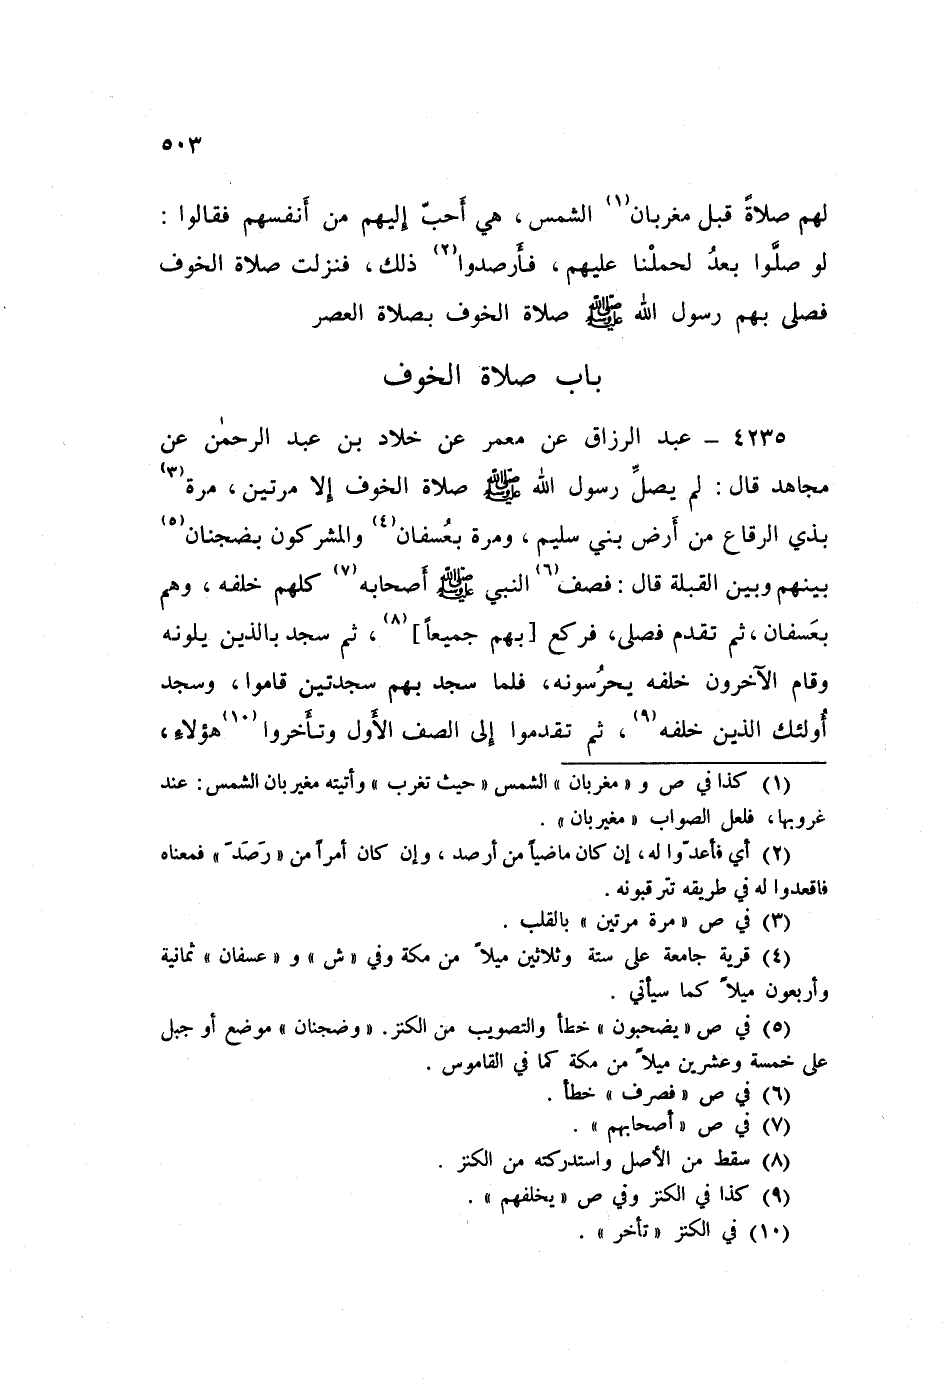 ٥٠٣
لهم صلاةً قبل مغربان(١) الشمس ، هي أَحبّ إليهم من أَنفسهم فقالوا :
لو صلَّوا بعدُ لحملْنا عليهم ، فأَرصدوا(٢) ذلك ، فنزلت صلاة الخوف
فصلى بهم رسول الله ﷺ صلاة الخوف بصلاة العصر
باب صلاة الخوف
٤٢٣٥ – عبد الرزاق عن معمر عن خلاد بن عبد الرحمٰن عن
مجاهد قال : لم يصلِّ رسول الله ﷺ صلاة الخوف إلا مرتين ، مرة(٣)
بذي الرقاع من أَرض بني سليم ، ومرة بعُسفان(٤) والمشركون بضجنان(٥)
بينهم وبين القبلة قال : فصف(٦) النبي ﷺ أَصحابه(٧) كلهم خلفه ، وهم
بعَسفان ، ثم تقدم فصلى ، فركع [بهم جميعاً](٨) ، ثم سجد بالذين يلونه
وقام الآخرون خلفه يحرُسونه ، فلما سجد بهم سجدتين قاموا ، وسجد
أُولئك الذين خلفه(٩) ، ثم تقدموا إلى الصف الأَول وتأَخروا(١٠) هؤلاءِ ،
(١) كذا في ص و « مغربان » الشمس « حيث تغرب » وأتيته مغيربان الشمس : عند
غروبها ، فلعل الصواب « مغيربان » .
(٢) أي فأعدّوا له ، إن كان ماضياً من أرصد ، وإن كان أمراً من « رَصَدَ » فمعناه
فاقعدوا له في طريقه تترقبونه .
(٣) في ص « مرة مرتين » بالقلب .
(٤) قرية جامعة على ستة وثلاثين ميلاً من مكة وفي « ش » و « عسفان » ثمانية
وأربعون ميلاً كما سيأتي .
(٥) في ص « يضحبون » خطأ والتصويب من الكنز . « وضجنان » موضع أو جبل
على خمسة وعشرين ميلاً من مكة كما في القاموس .
(٦) في ص « فصرف » خطأ .
(٧) في ص « أصحابهم » .
(٨) سقط من الأصل واستدركته من الكنز .
(٩) كذا في الكنز وفي ص « يخلفهم » .
(١٠) في الكنز « تأخر » .